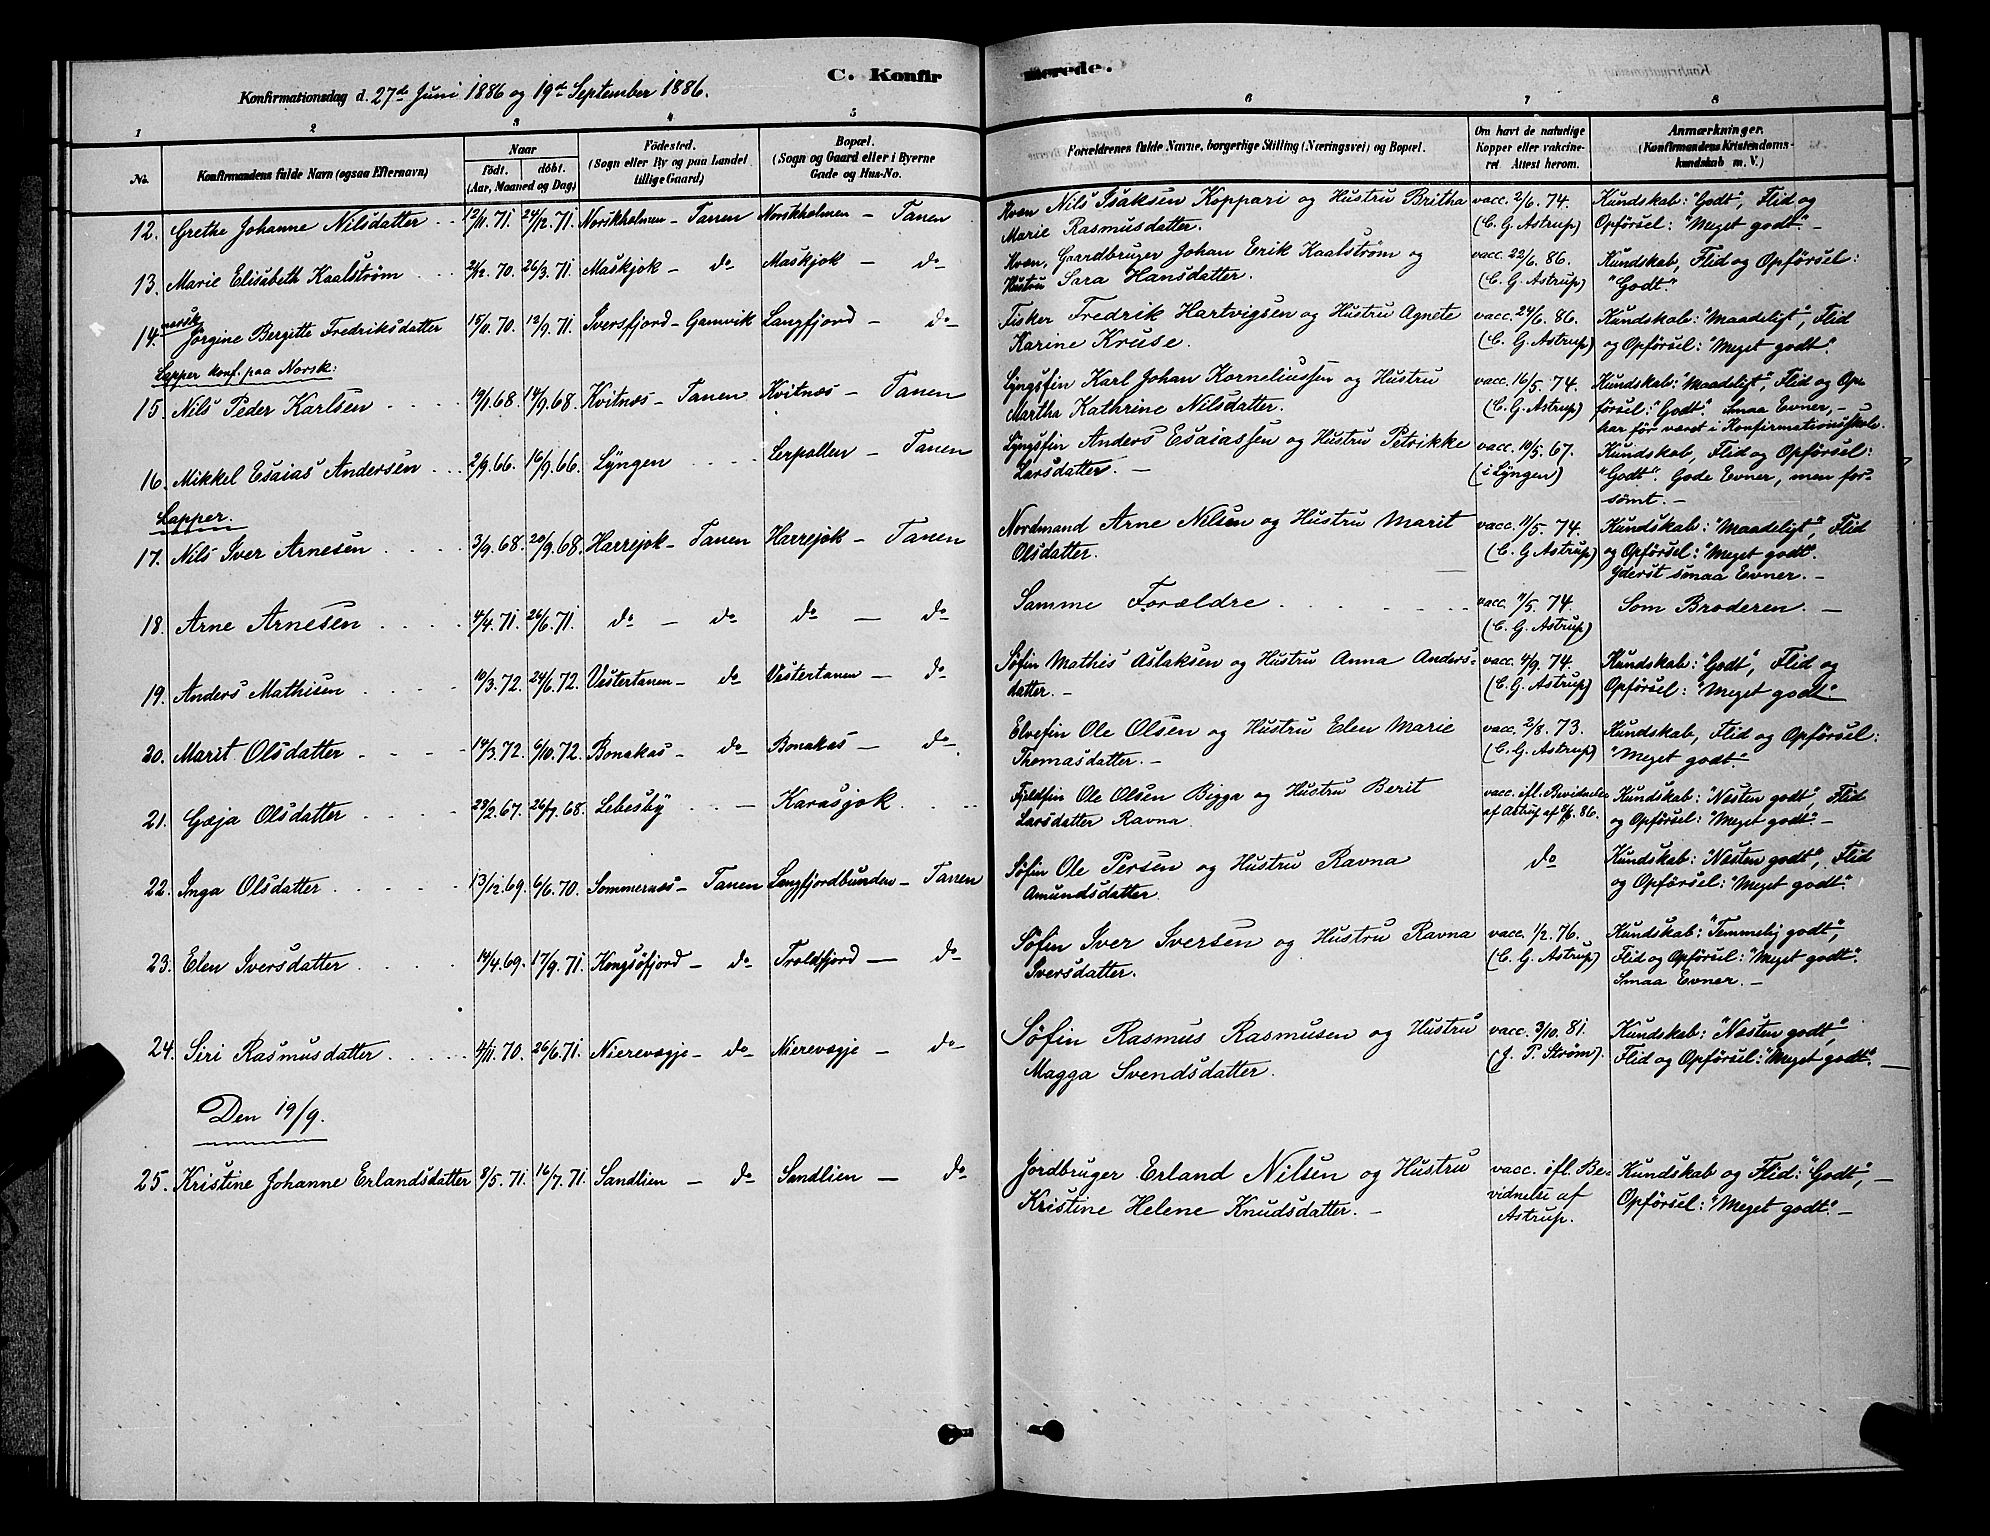 C. Konfirmerede.
Konfirmationsdag d. 27de Juni 1886 og 19de September 1886.
1 2 3 4 5 6 7 8
No. Konfirmandens fulde Navn (ogsaa Efternavn) Naar Födt. döbt. (Aar, Maaned og Dag) Födested. (Sogn eller By og paa Landet tillige Gaard) Bopæl. (Sogn og Gaard eller i Byerne Gade og Hus-No. Forældrenes fulde Navne, borgerlige Stilling (Næringsvei) og Bopæl. Om havt de naturlige Kopper eller vaccineret Attest herom. Anmærkninger. (Konfirmandens Kristendomskundskab m. V.)
12. Grethe Johanne Nilsdatter 12/11.71. 24/12.71. Norskholmen - Tanen Norskholmen - Tanen Kven Nils Isaksen Koppari og Hustru Britha vacc. 2/6.74. Kundskab: "Godt", Flid og
Marie Rasmusdatter. (C. G. Astrup) Opförsel: "Meget godt". -
13. Marie Elisabeth Kaalström 21/12.70. 26/3.71. Maskjok - do Maskjok - do Kven, Gaardbruger Johan Erik Kaalström og vacc. 22/6.86. Kundskab, Flid og Opförsel:
Hustru Sara Hansdatter. (C. G. Astrup) "Godt".
norsk
14. Jörgine Bergitte Fredriksdatter 15/11.70. 12/9.71. Iversfjord - Gamvik Langfjord - do Fisker Fredrik Hartvigsen og Hustru Agnete vacc. 24/6.86. Kundskab: "Maadeligt", Flid
Karine Kruse. (C. G. Astrup) og Opförsel: "Meget godt".
Lapper konf. paa Norsk:
15. Nils Peder Karlsen 19/1.68. 14/9.68. Kvitnæs - Tanen Kvitnæs - Tanen Lyngsfin Karl Johan Korneliussen og Hustru vacc. 16/5.74. Kundskab: "Maadeligt", Flid og Op-
Martha Kathrine Nilsdatter. (C. G. Astrup) försel: "Godt". Smaa Evner, -
har för været i Konfirmationsskole.
16. Mikkel Esaias Andersen 2/9.66. 16/9.66. Lyngen Lerpollen - Tanen Lyngsfin Anders Esaiassen og Hustru Petrikke vacc. 10/5.67. Kundskab, Flid og Opförsel:
Larsdatter. - (i Lyngen) "Godt". Gode Evner, men for-
sömt. -
Lapper.
17. Nils Iver Arnesen 3/9.68. 20/9.68. Harrejok - Tanen Harrejok - Tanen Nordmand Arne Nilsen og Hustru Marit vacc. 11/5.74. Kundskab: "Maadeligt", Flid
Olsdatter. (C. G. Astrup) og Opförsel: "Meget godt".
Yderst smaa Evner. -
18. Arne Arnesen 4/4.71. 26/6.71. do - do do - do Samme Forældre vacc. 11/5.74. Som Broderen. -
(C. G. Astrup)
19. Anders Mathisen 10/3.72. 24/6.72. Vestertanen - do Vestertanen - do Söfin Mathis Aslaksen og Hustru Anna Anders- vacc. 4/9.74. Kundskab: "Godt", Flid og
datter. - (C. G. Astrup) Opförsel: "Meget godt".
20. Marit Olsdatter 14/3.72. 6/10.72. Bonakas - do Bonakas - do Elvefin Ole Olsen og Hustru Elen Marie vacc. 2/8.73. Kundskab, Flid og Opförsel:
Thomasdatter. - (C. G. Astrup) "Meget godt".
21. Gæja Olsdatter 28/2.67. 26/7.68. Lebesby Karasjok Fjeldfin Ole Olsen Bigga og Hustru Berit vacc. ifl. Bevidnelse Kundskab: "Næsten godt", Flid
Larsdatter Ravna. af Astrup af 86. og Opförsel: "Meget godt". -
22. Inga Olsdatter 13/12.69. 6/6.70. Sommernæs - Tanen Langfjordbunden - Tanen Söfin Ole Persen og Hustru Ravna do Kundskab: "Næsten godt", Flid
Amundsdatter. og Opförsel: "Meget godt".
23. Elen Iversdatter 14/4.69. 17/9.71. Kongsöfjord - do Troldfjord - do Söfin Iver Iversen og Hustru Ravna vacc. 1/2.76. Kundskab: "Temmelig godt",
Iversdatter. (C. G. Astrup) Flid og Opförsel: "Meget godt".
Smaa Evner. -
24. Siri Rasmusdatter 4/11.70. 26/6.71. Nierevagje - do Nierevagje - do Söfin Rasmus Rasmusen og Hustru vacc. 3/10.81. Kundskab: "Næsten godt",
Magga Svendsdatter. (J. P. Ström). Flid og Opförsel: "Meget godt". -
Den 19/9.
25. Kristine Johanne Erlandsdatter 8/5.71. 16/7.71. Sandlien - do Sandlien - do Jordbruger Erland Nilsen og Hustru vacc. ifl. Be- Kundskab og Flid: "Godt", -
Kristine Helene Knudsdatter. - vidnelse af Opförsel: "Meget godt". -
Astrup.